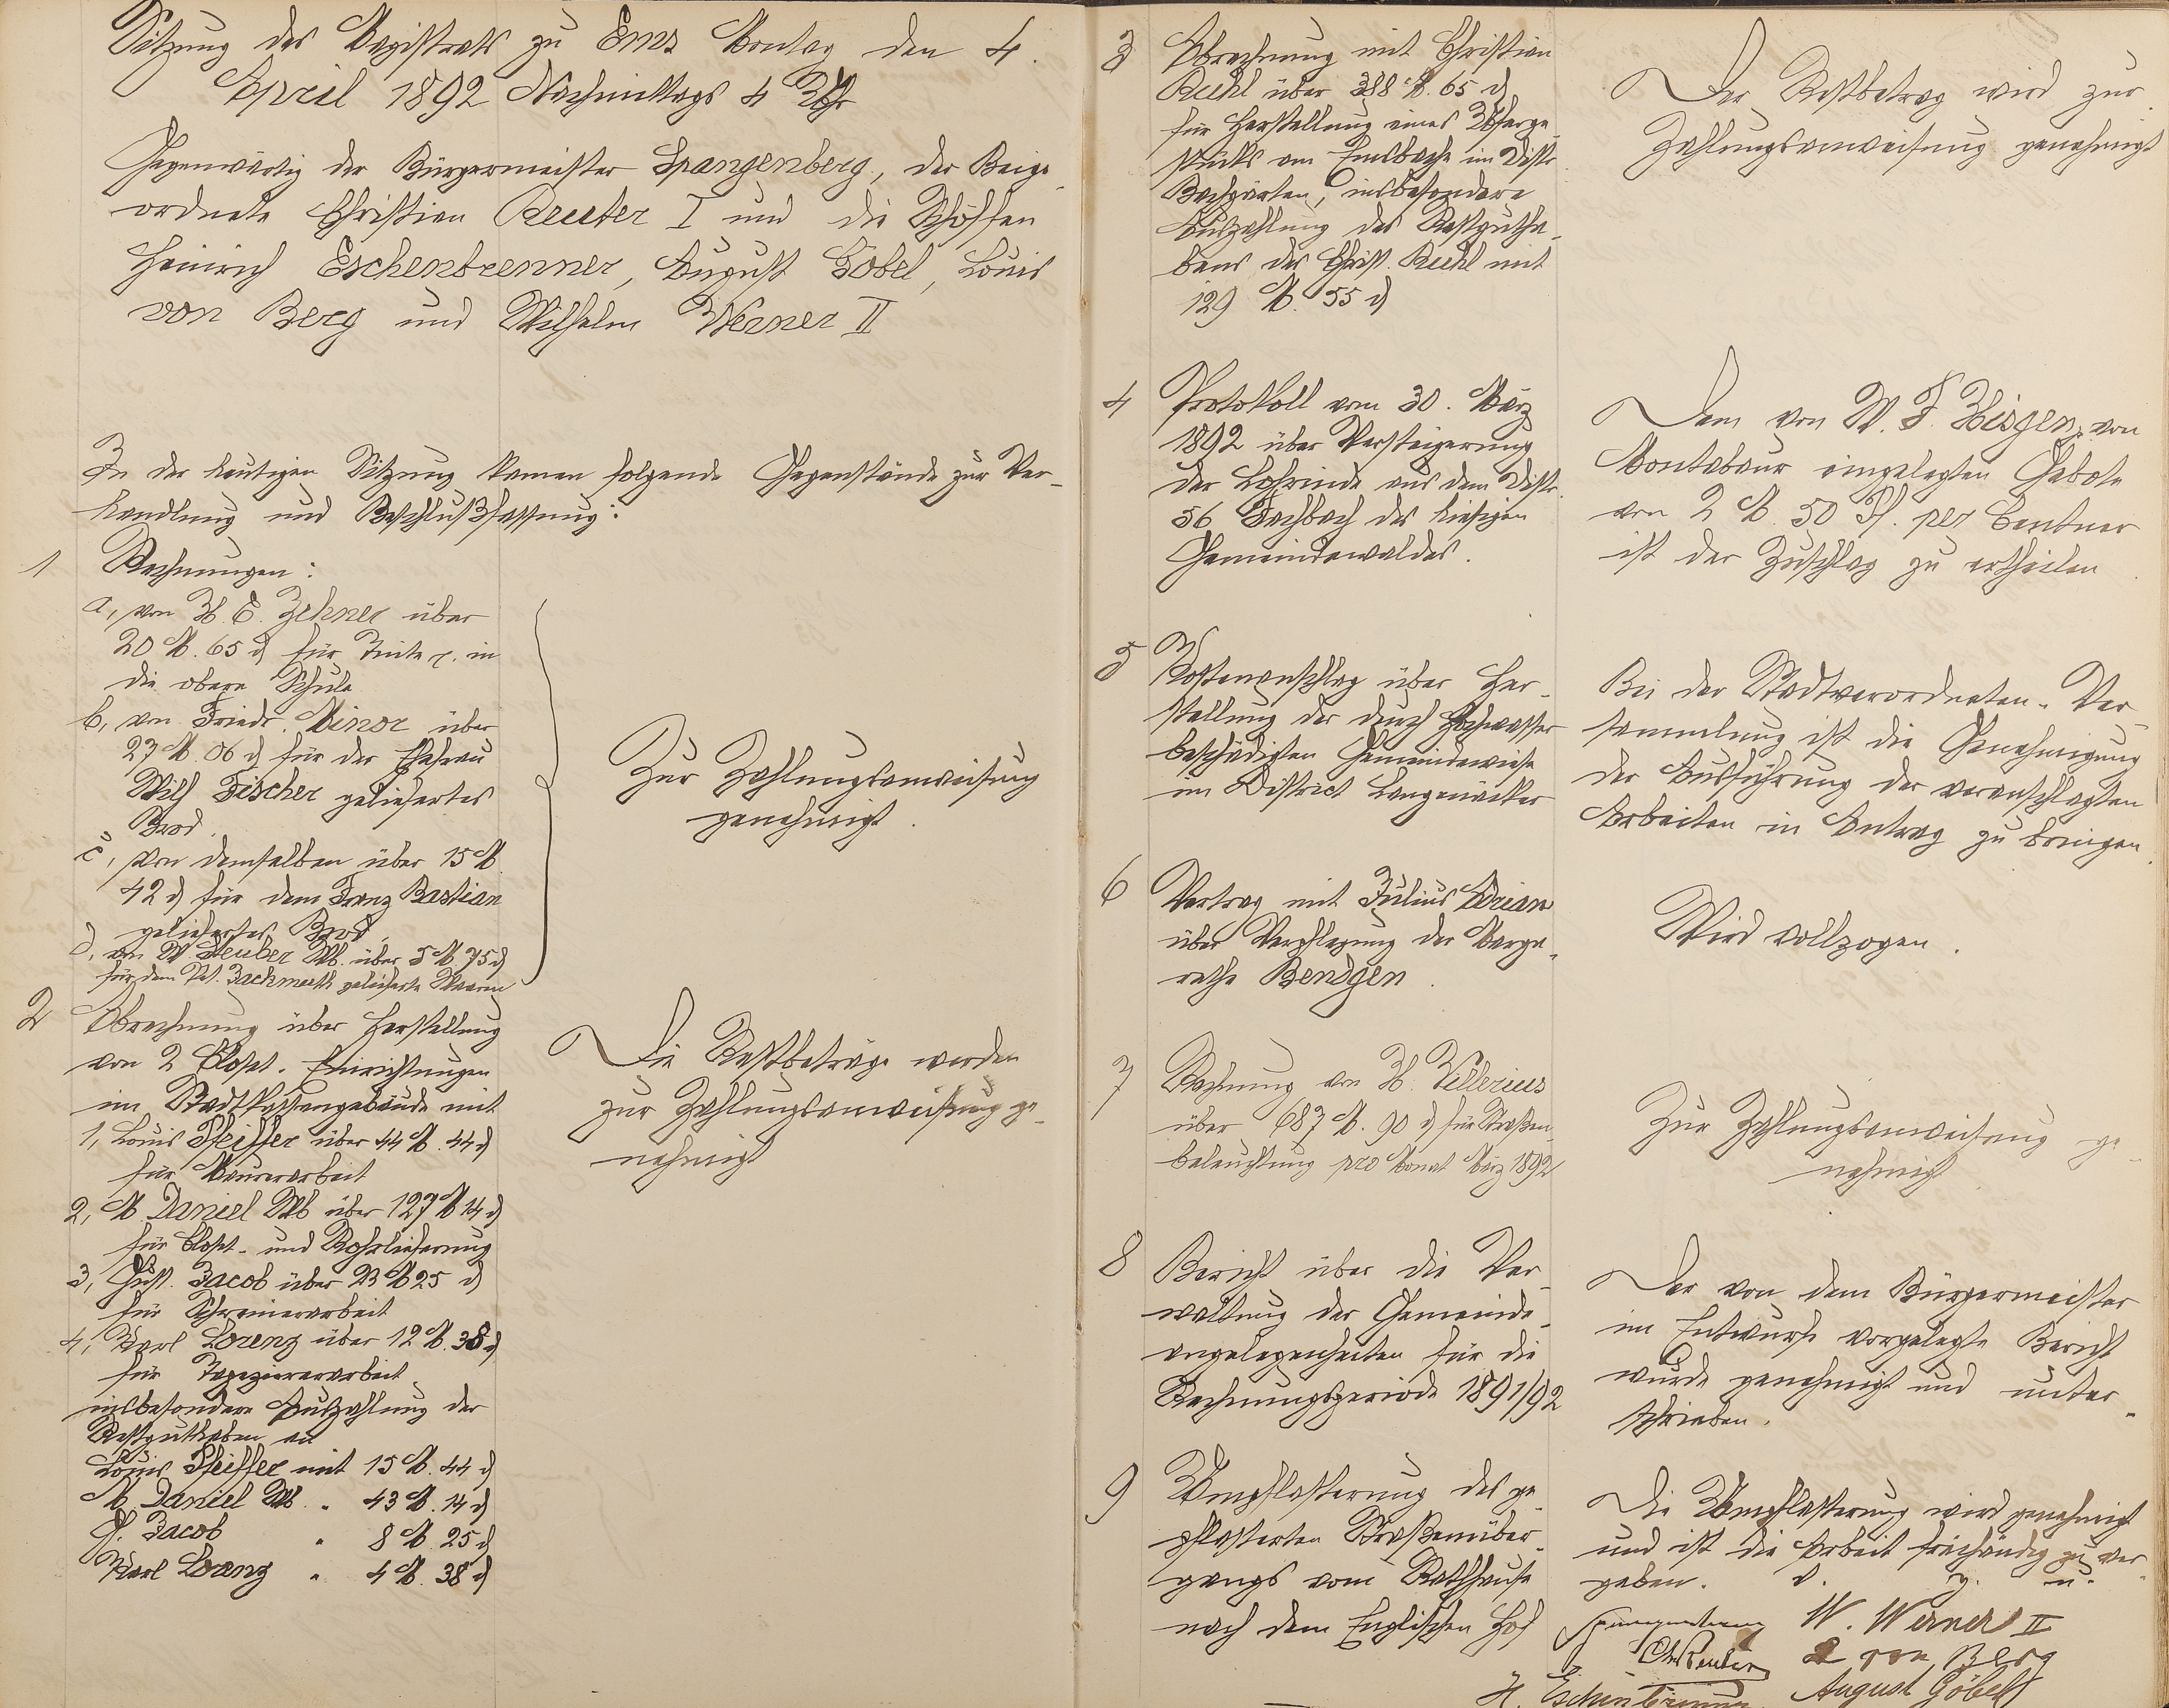 Sitzung des Magistrats zu Ems Montag den 4.
April 1892 Nachmittags 4 Uhr
Gegenwärtig der Bürgermeister Spangenberg, der Beige-
ordnete Christian Reuter I und die Schöffen
Heinrich Eschenbrenner, August Göbel, Louis
von Berg und Wilhelm Werner II
In der heutigen Sitzung kamen folgende Gegenstände zur Ver-
handlung und Beschlußfassung:
1 Rechnungen:
a, von H. E. Zehner über
20 M. 65 d für Tinte p. in
die obere Schule
b, von Friedr. Minor über
27 M. 06 d für der Ehefrau
Wilh Fischer geliefertes
Brod.
c, von demselben über 15 M.
42 d für dem Franz Bastian
geliefertes Brod
d, von W Heuber Wb. über 5 M. 75 d
für dem Pet. gelieferte Waaren
Zur Zahlungsanweisung
genehmigt.
2 Abrechnung über Herstellung
von 2 Closet-Einrichtungen
im Stadtkassengebäude mit
1, Louis Pfeiffer über 44 M. 44 d
für Maurerarbeit
2, M Daniel Wb über 127 M 14 d
für Closet- und Rohrlieferung
3, Gust. Jacob über 23 M 25 d
für Schreinerarbeit
4, Karl Lorenz über 12 M. 38 d
für Tapeziererarbeit
insbesondere Auszahlung der
Restguthaben an
Louis Pfeiffer mit 15 M. 44 d
M Daniel Wb. " 43 M. 14 d
G. Jacob " 8 M. 25 d
Karl Lorenz " 4 M. 38 d
Die Restbeträge werden
zur Zahlungsanweisung ge-
nehmigt
3 Abrechnung mit Christian
Ruhl über 388 M. 65 d
für Herstellung eines Uferge-
stücks am Emsbache im Distr.
Bachgärten, insbesondere
Auszahlung des Restgutha-
bens des Christ. Ruhl mit
129 M. 55 d
Der Restbetrag wird zur
Zahlungsanweisung genehmigt
4 Protokoll vom 30. März
1892 über Versteigerung
der Lohrinde aus dem Distr.
56 Fachbach des hiesigen
Gemeindewaldes.
Dem von W. F. Hisgen von
Montabaur eingelegten Gebote
von 2 M. 50 Pf. per Centner
ist der Zuschlag zu ertheilen.
5 Kostenanschlag über Her-
stellung der durch Hochwasser
beschädigten Gemeindewiese
im District Langenäcker
Bei der Stadtverordneten-Ver-
sammlung ist die Genehmigung
der Ausführung der veranschlagten
Arbeiten in Antrag zu bringen.
6 Vertrag mit Julius Adrian
über Verpflegung der Marga-
rethe Bendgen.
Wird vollzogen.
7 Rechnung von H. Vellerius
über 687 M. 90 d für Straßen-
beleuchtung pro Monat März 1892
Zur Zahlungsanweisung ge-
nehmigt
8 Bericht über die Ver-
waltung der Gemeinde-
angelegenheiten für die
Rechnungsperiode 1891/92
Der von dem Bürgermeister
im Entwurfe vorgelegte Bericht
wurde genehmigt und unter-
schrieben.
9 Umpflasterung des ge-
pflasterten Straßenüber-
gangs vom Rathhause
nach dem Englischen Hof
Die Umpflasterung wird genehmigt
und ist die Arbeit freihändig zu ver-
geben. v. g. u.
Spangenberg W. Werner II
Chr Reuter L von Berg
H. Eschenbrenner August Göbel